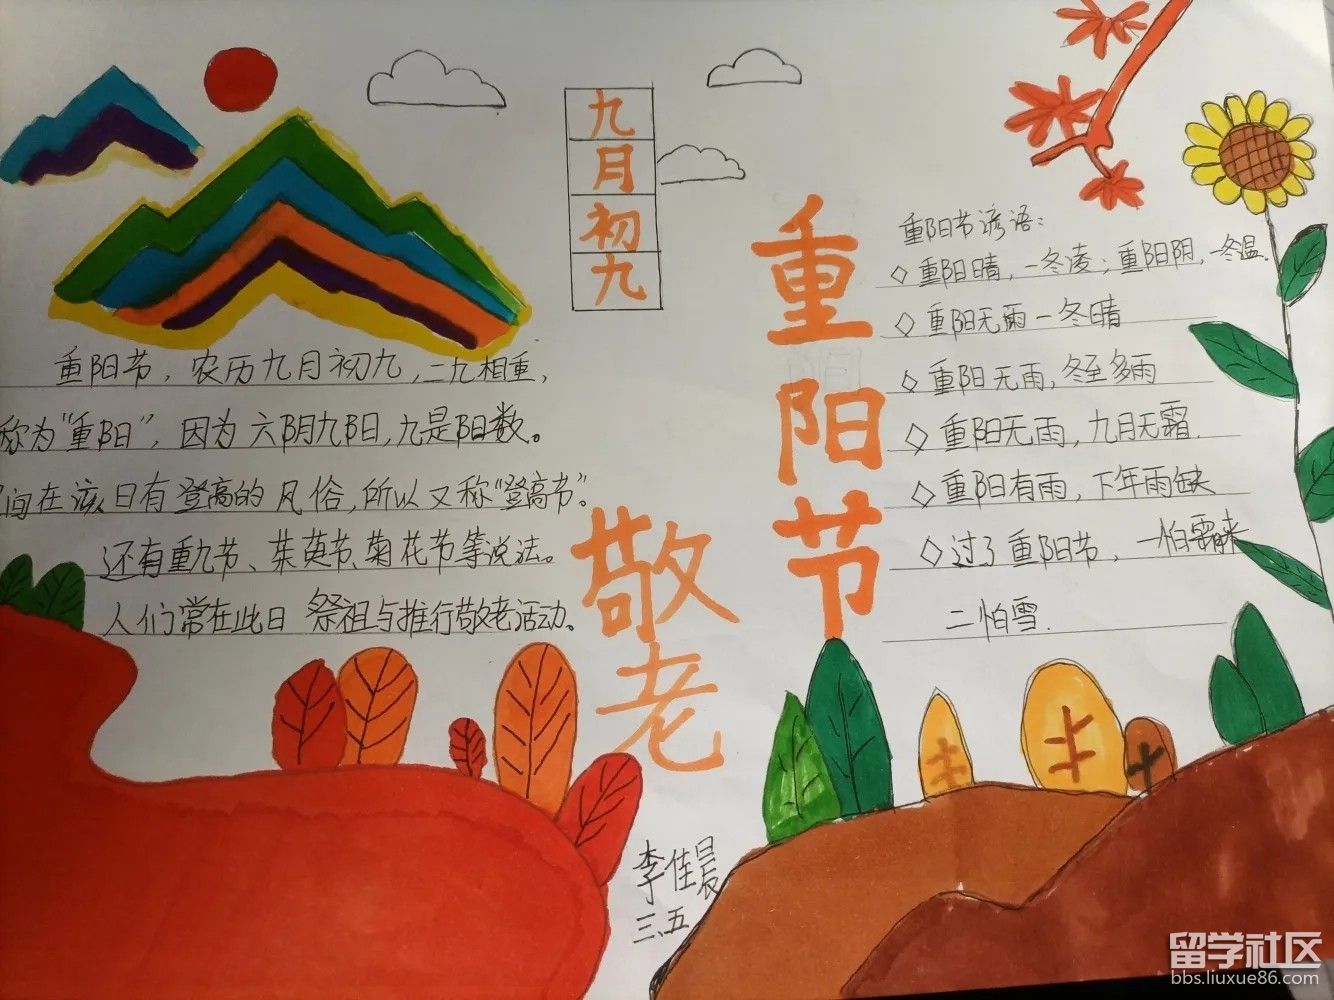 九月初九
重阳节
敬老
重阳节，农历九月初九，二九相重，
称为“重阳”，因为六阴九阳，九是阳数。
间在该日有登高的风俗，所以又称“登高节”。
还有重九节、茱萸节、菊花节等说法。
人们常在此日祭祖与推行敬老活动。
重阳节谚语：
◇重阳晴，一冬凌；重阳阴，一冬温.
◇重阳无雨一冬晴
◇重阳无雨，冬至多雨
◇重阳无雨，九月无霜.
◇重阳有雨，下年雨缺
◇过了重阳节，一怕霜来
二怕雪.
李佳晨
三、五
留学社区
bbs.liuxue86.com